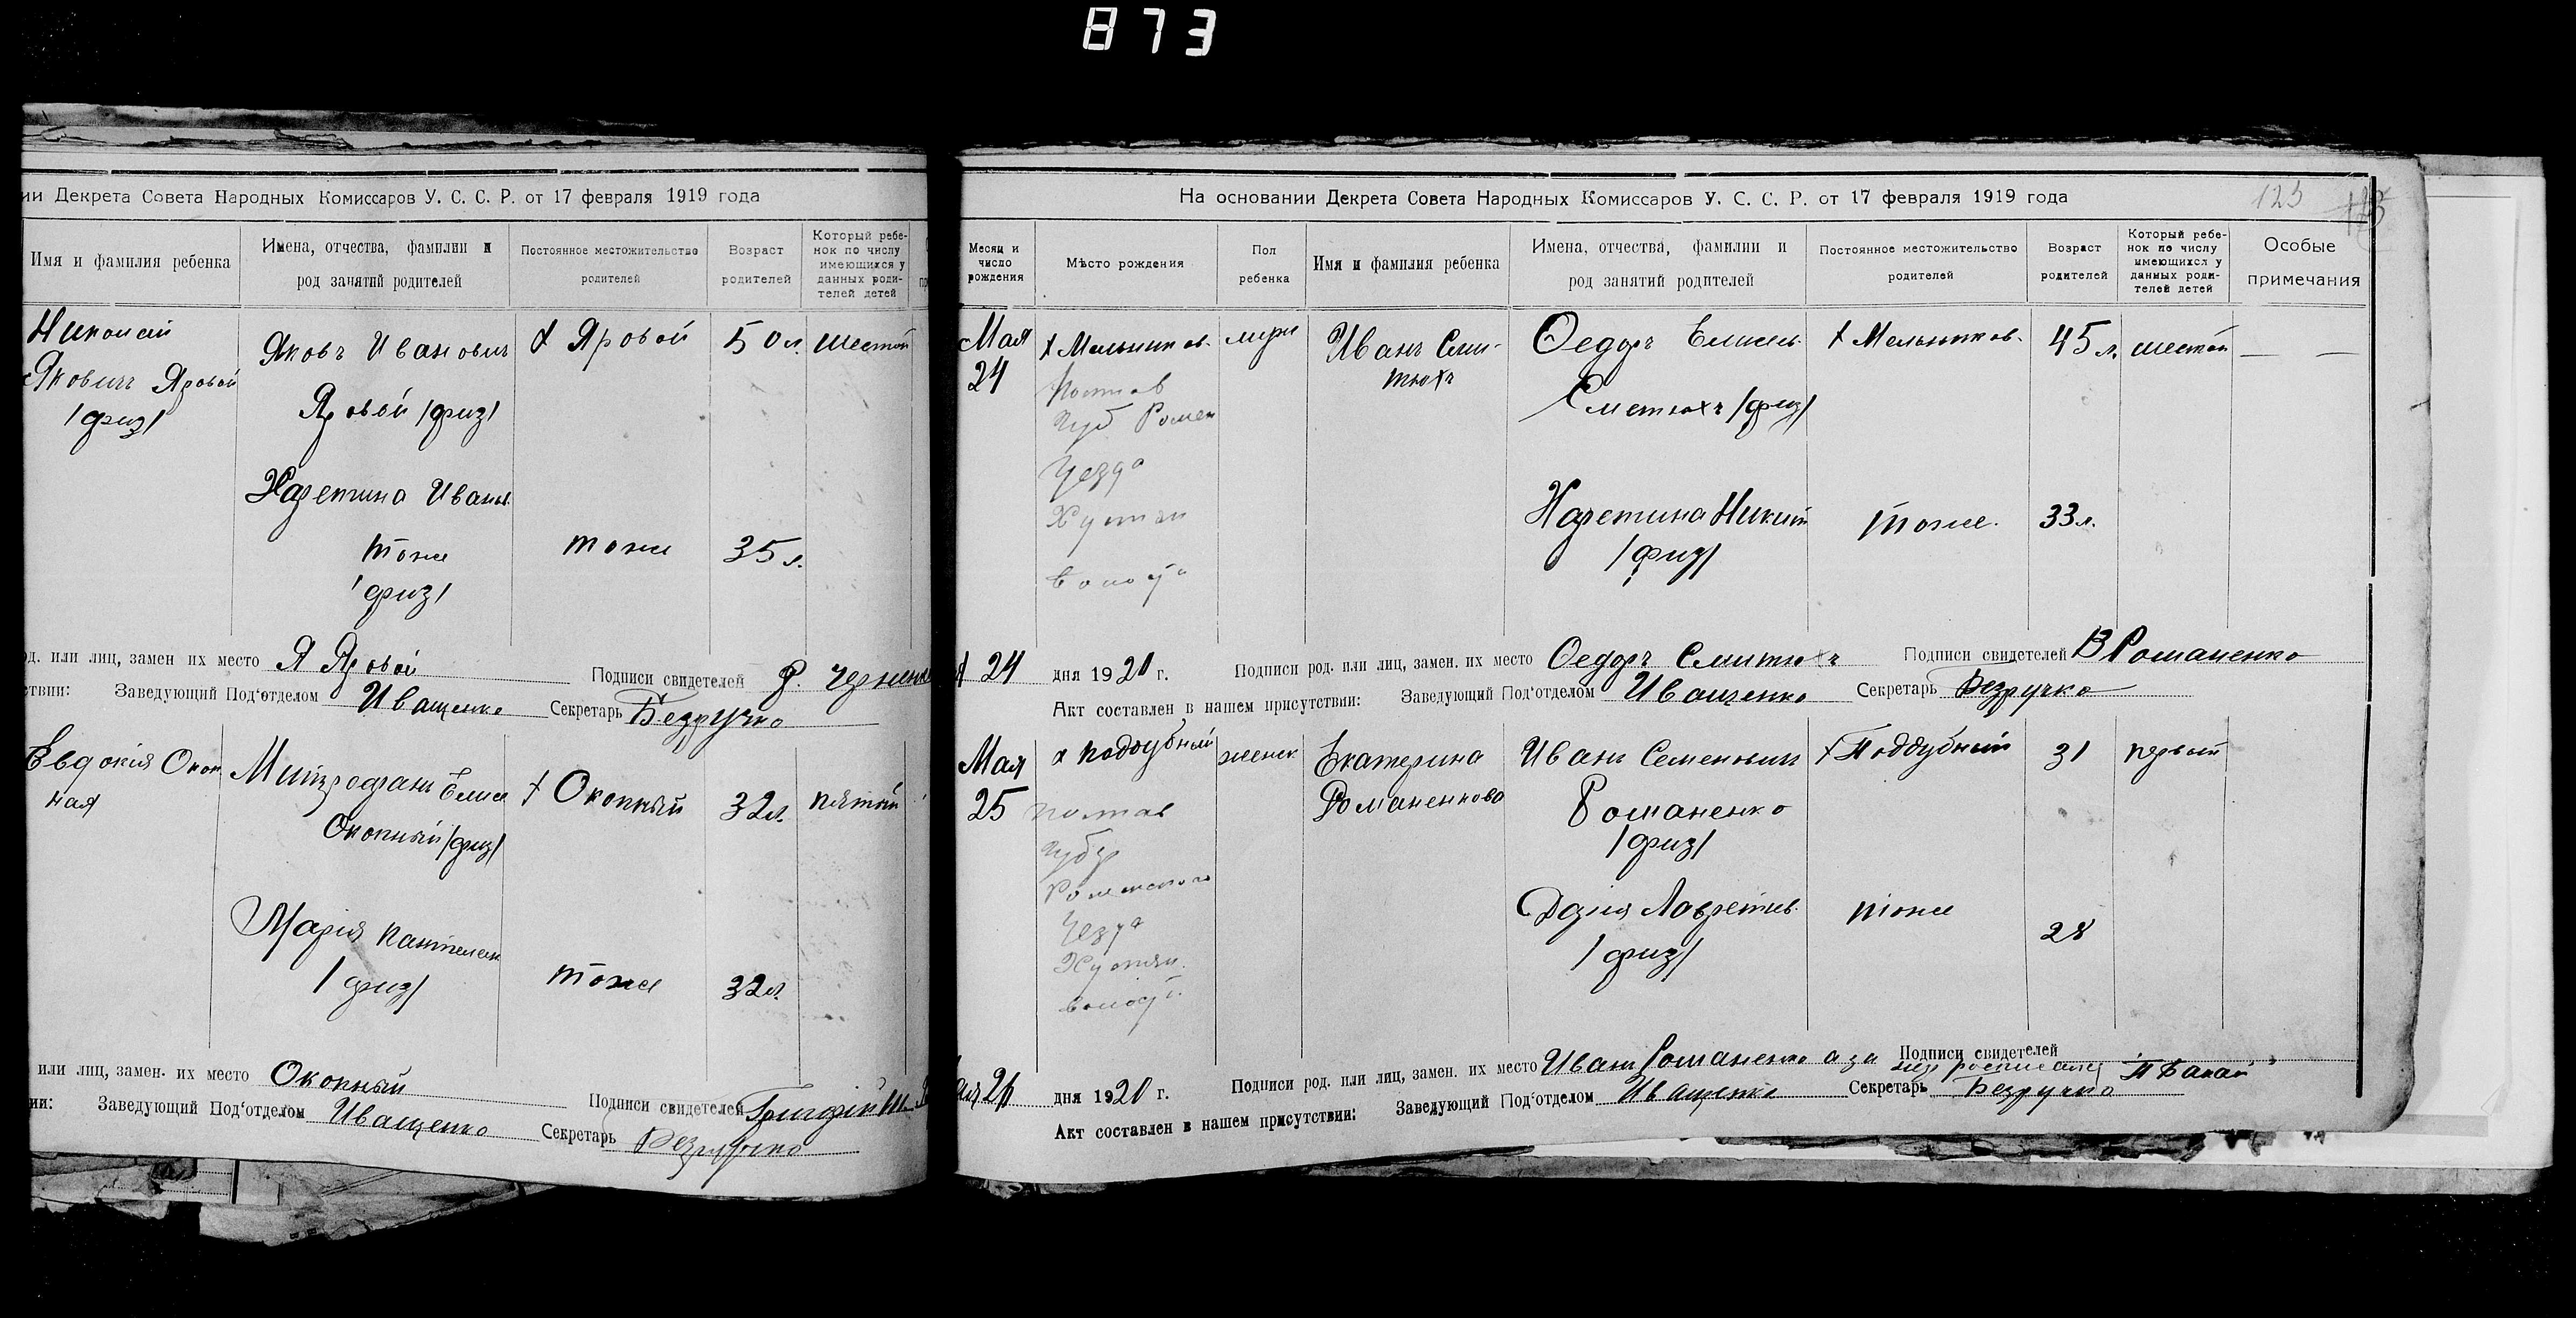 873
ии Декрета Совета Народных Комиссаров У. С. С. Р. от 17 февраля 1919 года
Имя и фамилия ребенка
Имена, отчества, фамилии и
род занятий родителей
Постоянное местожительство
родителей
Возраст
родителей
Который ребе-
нок по числу
имеющихся у
данных роди-
телей детей
Николай
Яковичъ Яровой
/физ/
Яковъ Ивановичъ
Яровой /физ/
х Яровой
50 л.
шестой
Харетина Иванов.
тоже
/физ/
тоже
35 л.
од. или лиц, замен их место Я Яровой
Подписи свидетелей
ствии: Заведующий Под'отделом Иващенко Секретарь Безручко
Евдокія Окоп
ная
Митрофанъ Елисе
Окопный /физ/
х Окопный
32 л.
пятый
Марія Пантелеим
/физ/
тоже
32 л.
или лиц, замен. их место Окопный
Подписи свидетелей
ии: Заведующий Под'отделом Иващенко Секретарь Безручко
На основании Декрета Совета Народных Комиссаров У. С. С. Р. от 17 февраля 1919 года
123
Месяц и
число
рождения
Мѣсто рождения
Пол
ребенка
Имя и фамилия ребенка
Имена, отчества, фамилии и
род занятий родителей
Постоянное местожительство
родителей
Возраст
родителей
Который ребе-
нок по числу
имеющихся у
данных роди-
телей детей
Особые
примечания
Мая
24
х Мельников.
Полтав
Губ Ромен
Уезда
Хустян
Волост
Иванъ Сми-
тюхъ
Федоръ Елисев.
Сметюхъ /физ/
х Мельников.
45 л.
шестой
— —
Харетина Никит
/физ/
тоже.
33 л.
24 дня 1920 г.
Подписи род. или лиц, замен. их место Федоръ Смитюхъ
Подписи свидетелей В Романенко
Акт составлен в нашем присутствии: Заведующий Под'отделом Иващенко Секретарь Безручко
Мая
25
х Поддубный
Полтав
Губер
Роменского
Уезда
Хустян.
волост.
женск
Екатерина
Романенкова
Иванъ Семеновичъ
Романенко
/физ/
х Поддубный
31
первый
Дарія Лаврентіев.
/физ/
тоже
28
дня 1920 г.
Подписи род. или лиц, замен. их место Иванъ Романенко а за
Подписи свидетелей
Акт составлен в нашем присутствии: Заведующий Под'отделом Иващенко Секретарь Безручко